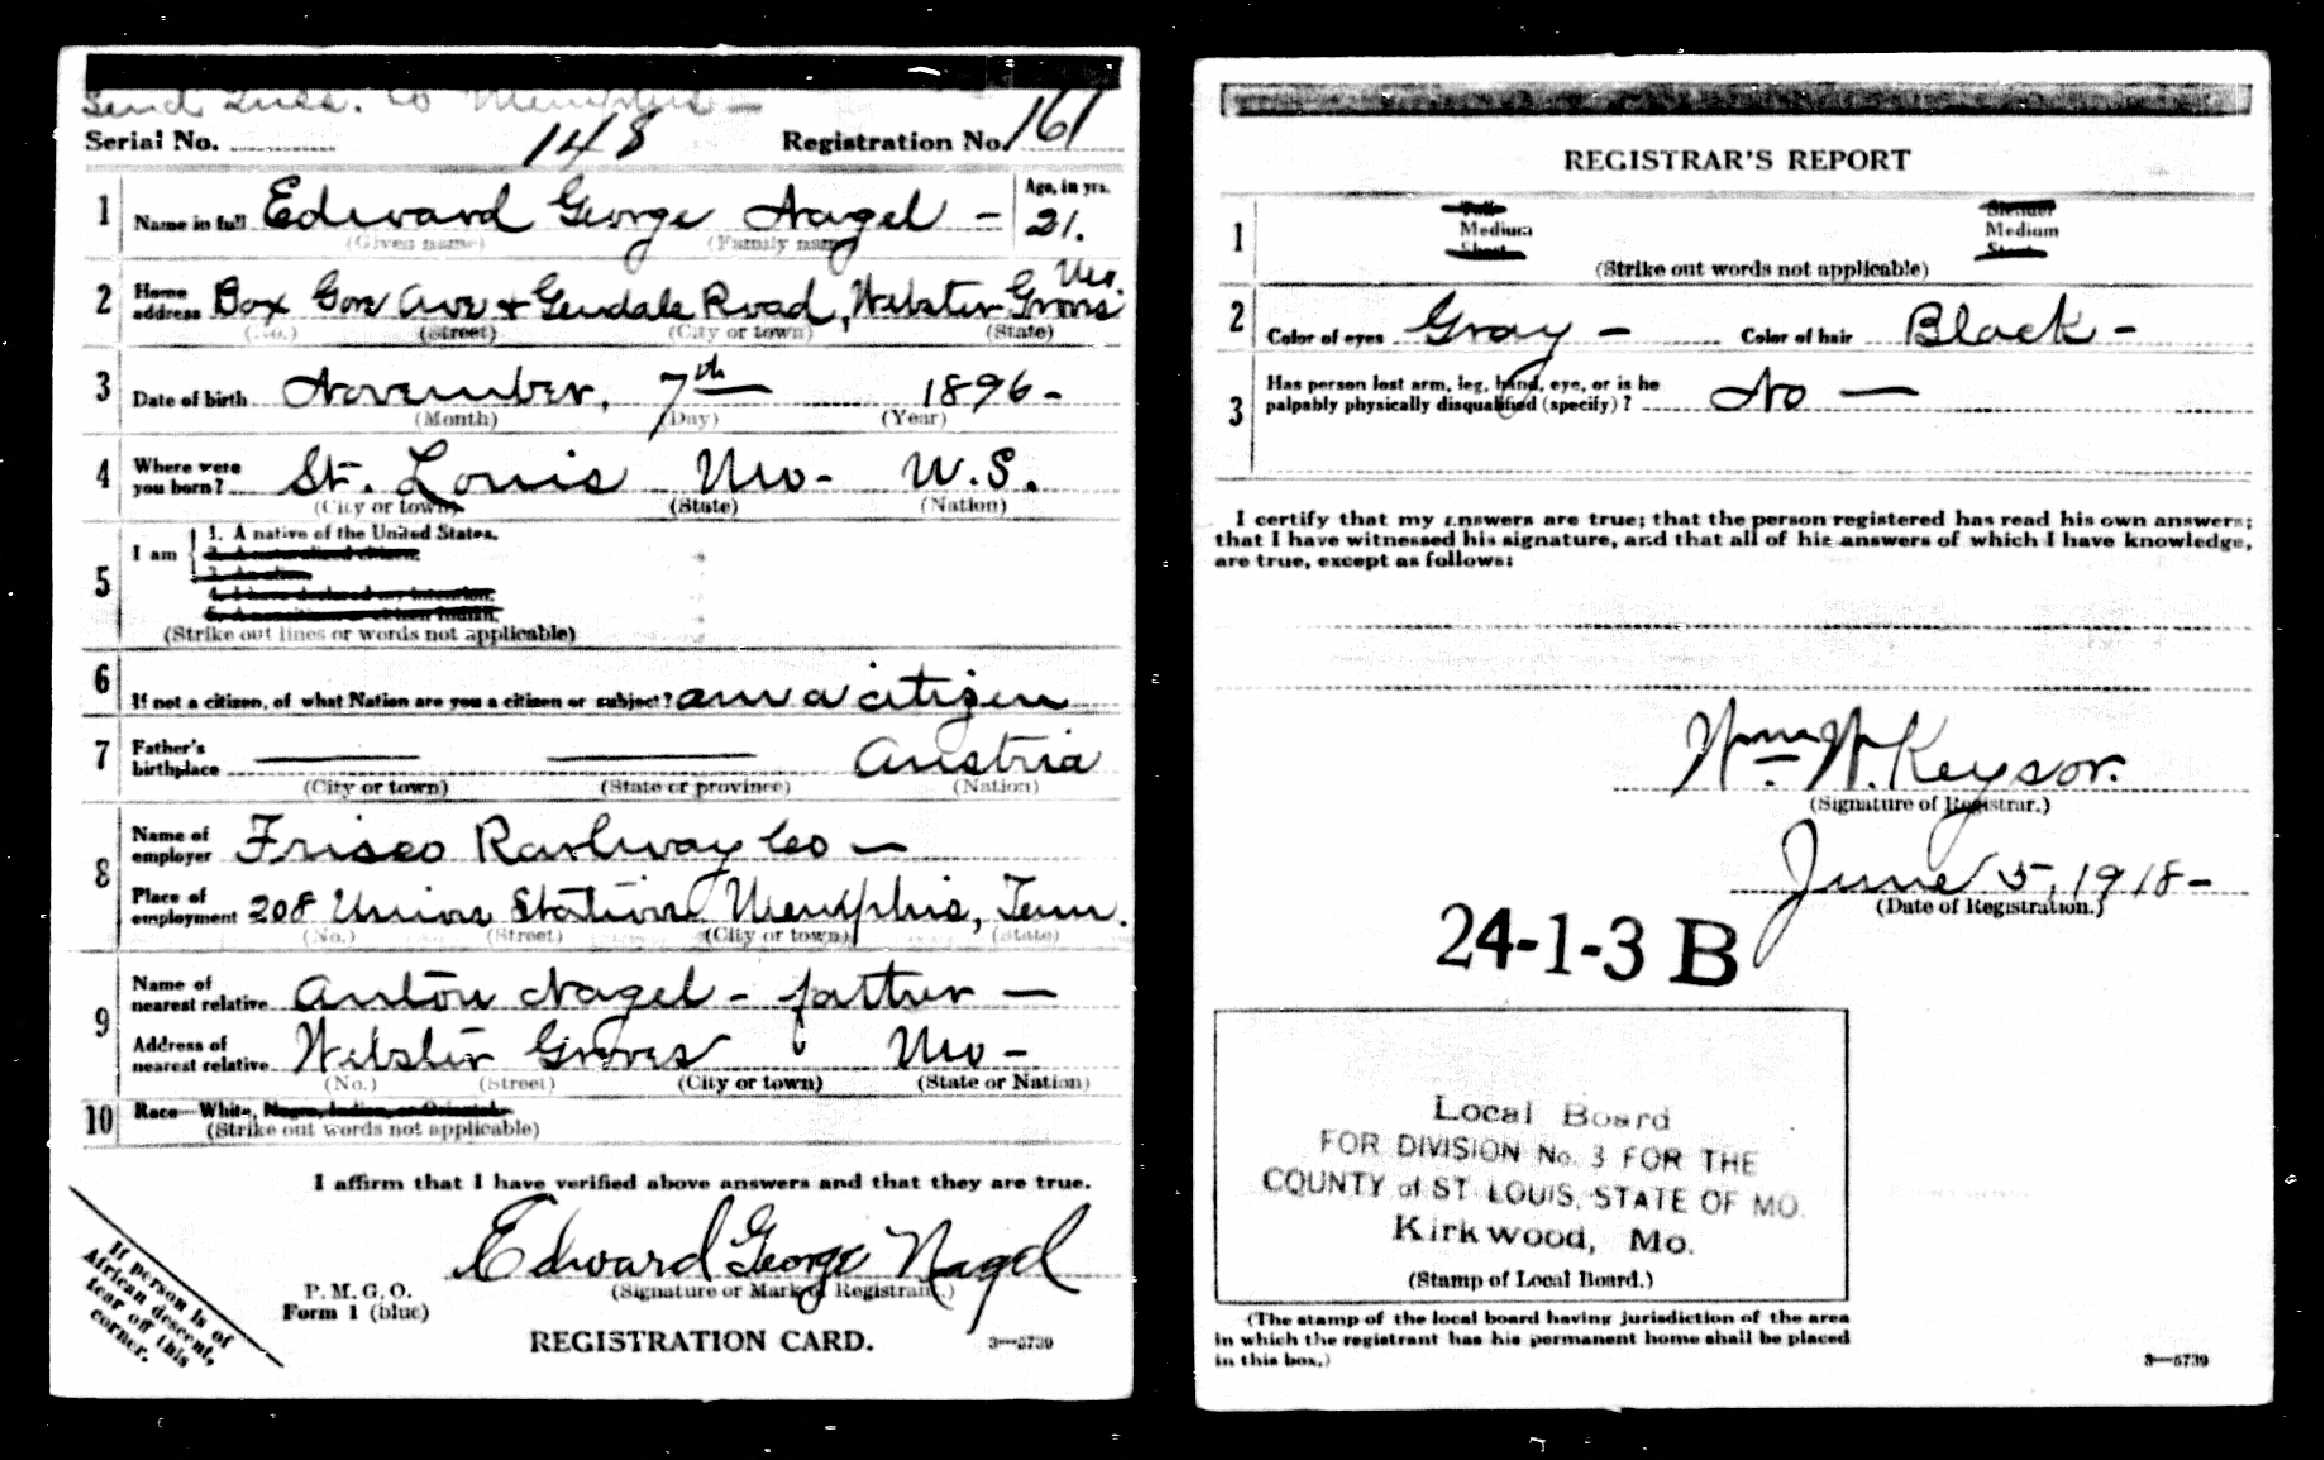 Send Ques. to Memphis —
Serial No. 148 Registration No. 161
1 Name in full Edward George Nagel - Age, in yrs. 21.
(Given name) (Family name)
Mo.
2 Home address Box Gore Ave + Glendale Road, Webster Groves
(No.) (Street) (City or town) (State)
3 Date of birth November, 7th 1896 -
(Month) (Day) (Year)
4 Where were you born? St. Louis Mo - U.S.
(City or town) (State) (Nation)
5 I am 1. A native of the United States.
2. A naturalized citizen.
3. An alien
4. I have declared my intention.
(Strike out lines or words not applicable)
6 If not a citizen, of what Nation are you a citizen or subject? am a citizen
7 Father's birthplace Austria
(City or town) (State or province) (Nation)
8 Name of employer Frisco Railway Co —
Place of employment 208 Union Station Memphis, Tenn.
(No.) (Street) (City or town) (State)
9 Name of nearest relative Anton Nagel - father —
Address of nearest relative Webster Groves Mo -
(No.) (Street) (City or town) (State or Nation)
10 Race—White, Negro, Indian, or Oriental.
(Strike out words not applicable)
I affirm that I have verified above answers and that they are true.
Edward George Nagel
(Signature or Mark of Registrant.)
P. M. G. O.
Form 1 (blue)
REGISTRATION CARD. 3—5739
If person is of
African descent,
tear off this
corner.
REGISTRAR'S REPORT
1 Tall Slender
Medium Medium
Short Stout
(Strike out words not applicable)
2 Color of eyes Gray - Color of hair Black -
3 Has person lost arm, leg, hand, eye, or is he
palpably physically disqualified (specify)? No —
I certify that my answers are true; that the person registered has read his own answers;
that I have witnessed his signature, and that all of his answers of which I have knowledge,
are true, except as follows:
Wm. W. Keysor.
(Signature of Registrar.)
June 5, 1918 -
(Date of Registration.)
24-1-3 B
Local Board
FOR DIVISION No. 3 FOR THE
COUNTY of ST. LOUIS, STATE OF MO.
Kirkwood, Mo.
(Stamp of Local Board.)
(The stamp of the local board having jurisdiction of the area
in which the registrant has his permanent home shall be placed
in this box.)
3—5739